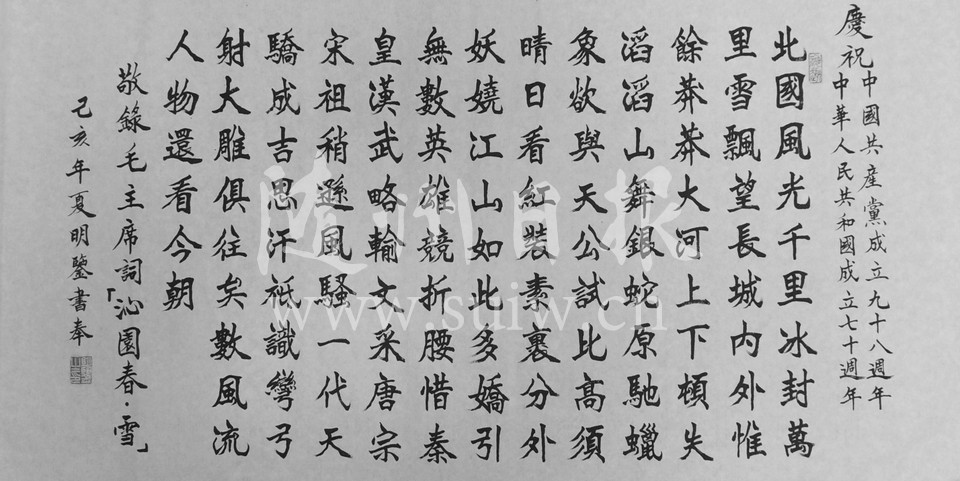 慶祝中國共產黨成立九十八週年
中華人民共和國成立七十週年
北國風光千里冰封萬
里雪飄望長城内外惟
餘莽莽大河上下頓失
滔滔山舞銀蛇原馳蠟
象欲與天公試比高須
晴日看紅裝素裏分外
妖嬈江山如此多嬌引
無數英雄競折腰惜秦
皇漢武略輸文采唐宗
宋祖稍遜風騷一代天
驕成吉思汗祇識彎弓
射大雕俱往矣數風流
人物還看今朝
敬錄毛主席詞「沁園春·雪」
己亥年夏明鑒書奉
随州日报
www.suiw.cn